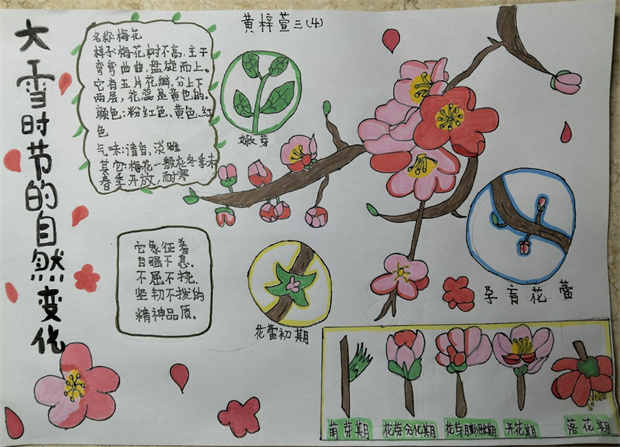 大雪时节的自然变化
黄梓萱三(4)
名称:梅花
样子:梅花树不高,主干
弯弯曲曲,盘旋而上。
它有五片花瓣,分上下
两层,花蕊是黄色的。
颜色:粉红色、黄色、红
色
气味:清香,淡雅
其它:梅花一般在冬季末
春季开放,耐寒
嫩芽
它象征着
自强不息、
不屈不挠、
坚韧不拔的
精神品质。
花蕾初期
孕育花蕾
萌芽期
花芽分化期
花芽膨胀期
开花期
落花期